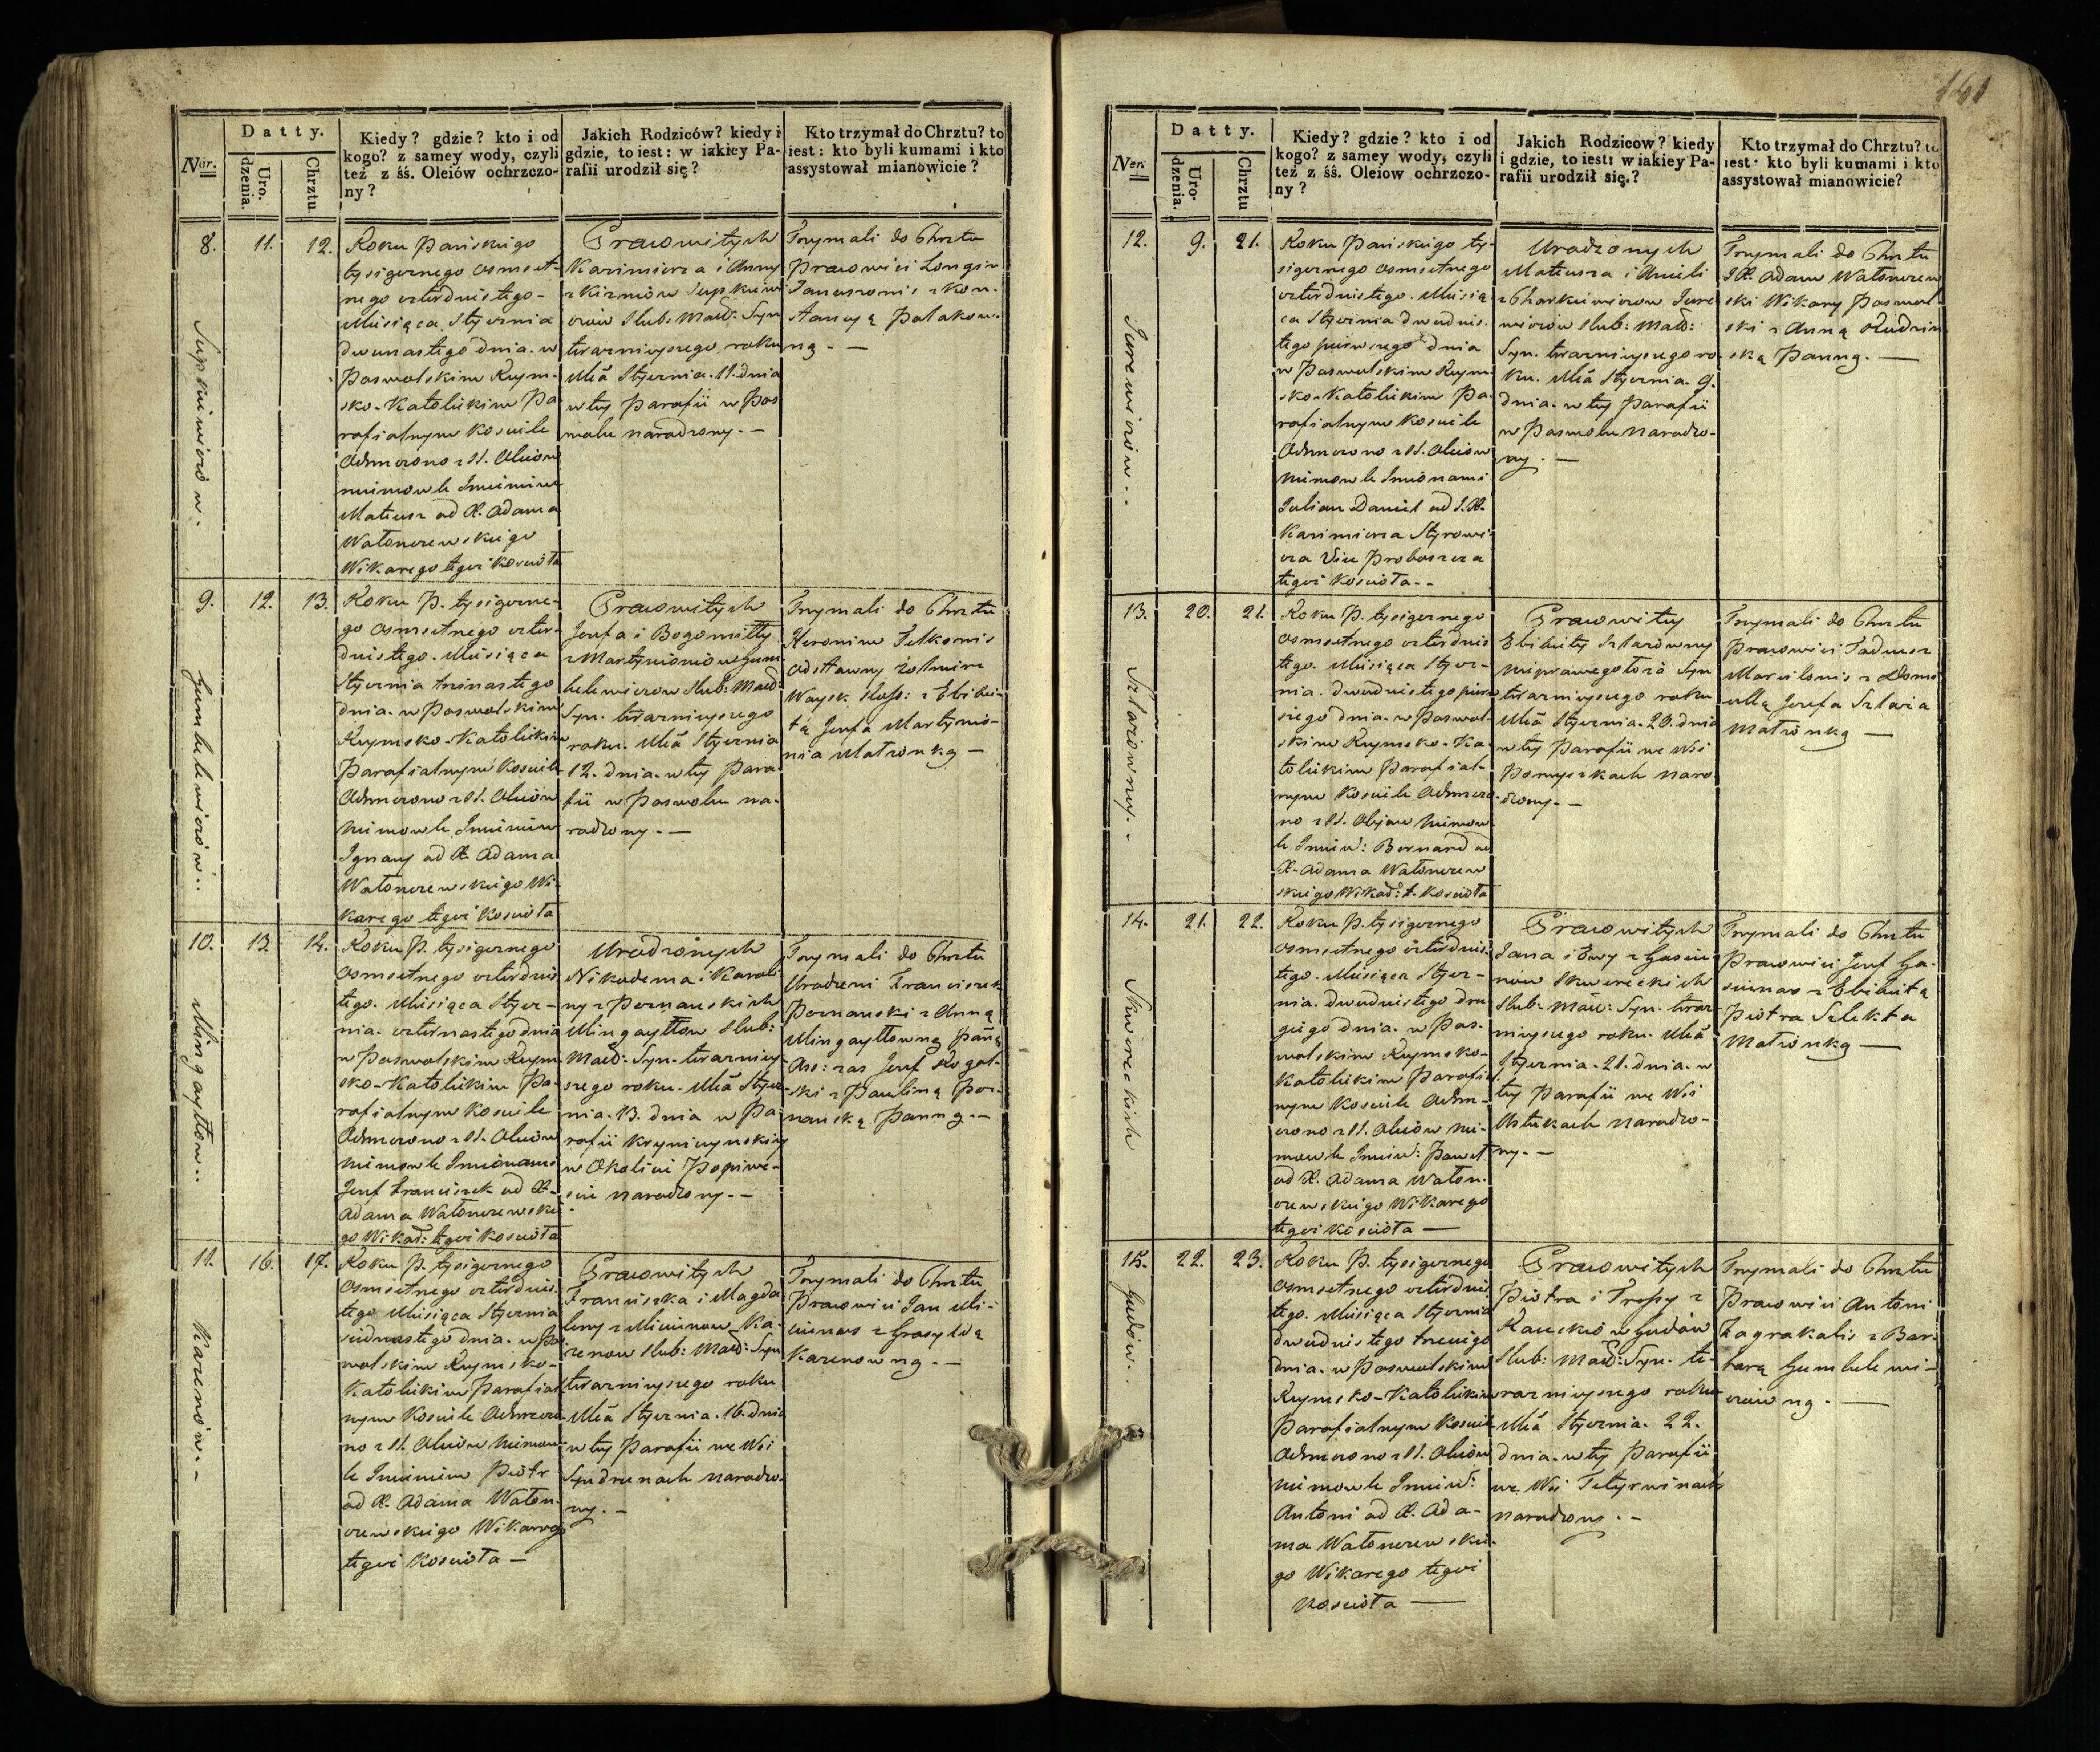 161
Datty.
Nör.
Uro. dzenia.
Chrztu
Kiedy? gdzie? kto i od
kogo? z samey wody, czyli
też z śś. Oleiów ochrzczo-
ny?
Jakich Rodziców? kiedy i
gdzie, to iest: w iakiey Pa-
rafii urodził się?
Kto trzymał do Chrztu? to
iest: kto byli kumami i kto
assystował mianowicie?
8.
11.
12.
Roku Pańskiego
tysiącznego osmset-
nego czterdziestego
Miesiąca Stycznia
dwunastego dnia. w
Poswolskim Rzym-
sko-Katolickim Pa
rafialnym Kosciele
Ochrzczono z SS. Oleiów
niemowle Imieniem
Mateusz od X. Adama
Watonczewskiego
Wikarego tegoż Kościoła
Pracowitych
Kazimierza i Anny
z
Slub: Małż: Syn
teraznieyszego roku
Mcā Stycznia. 11. dnia
w tey Parafii w Pos
wolu narodzony. —
Trzymali do Chrztu
Pracowici Longin
Januszonis z Kon-
stancyą Polakow-
ną. —
9.
12.
13.
Gumbelewiczów..
Roku P. tysiączne-
go osmsetnego czter-
dziestego. Miesiąca
Stycznia trzinastego
dnia. w Poswolskim
Rzymsko-Katolickim
Parafialnym Kosciele
Ochrzczono z SS. Oleiów
Niemowle Imieniem
Ignacy od X. Adama
Watonczewskiego Wi-
karego tegoż Kościoła
Pracowitych
Jozefa i Bogomiłły
z Martynioniow Gum
belewiczow Slub: Małż:
Syn. teraznieyszego
roku. Mcā Stycznia
12. dnia. w tey Para
fii w Poswolu na-
rodzony. —
Trzymali do Chrztu
Heronim Petkonis
Odstawny Żołnierz
Woysk. Ross: z Elżbie-
tą Jozefa Martynio-
nia Małżonką —
10.
13.
14.
Mingayłłow..
Roku P. tysiącznego
Osmsetnego czterdzies
tego. Miesiąca Stycz-
nia. czternastego dnia
w Poswolskim Rzym
sko-Katolickim Pa-
rafialnym Kosciele
Ochrzczono z SS. Oleiów
Niemowle Imionami
Jozef Franciszek od X.
Adama Watonczewskie
go Wikar: tegoż Kościoła
Urodzonych
Nikodema i Karoli
ny z Poznańskich
Mingayłłow Slub:
Małż: Syn. terazniey-
szego roku. Mcā Stycz-
nia. 13. dnia w Pa
rafii Krynczynskiey
w Okolicy Popiwe-
sie narodzony. —
Trzymali do Chrztu
Urodzeni Franciszek
Poznanski z Anną
Mingayłłowną Panną
Ass: zas Jozef Rogal-
ski z Pauliną Poz-
nanską Panną. —
11.
16.
17.
Karenów. —
Roku P. tysiącznego
Osmsetnego czterdzies-
tego Miesiąca Stycznia
siedmnastego dnia. w Pos
wolskim Rzymsko-
Katolickim Parafial
nym Kosciele Ochrzczo-
no z SS. Oleiów Niemow-
le Imieniem Piotr
od X. Adama Waton-
czewskiego Wikarego
tegoż Kościoła —
Pracowitych
Franciszka i Magda
leny z Micunow Ka-
renow Slub: Małż: Syn
teraznieyszego roku
Mcā Stycznia. 16. dnia
w tey Parafii we Wsi
narodzo-
ny. —
Trzymali do Chrztu
Pracowici Jan Mi-
cunas z Grasyldą
Karenowną. —
Datty.
Ner.
Uro- dzenia.
Chrztu
Kiedy? gdzie? kto i od
kogo? z samey wody, czyli
też z śś. Oleiow ochrzczo-
ny?
Jakich Rodziców? kiedy
i gdzie, to iest: w iakiey Pa-
rafii urodził się.?
Kto trzymał do Chrztu? to
iest: kto byli kumami i kto
assystował mianowicie?
12.
9.
21.
Jurewiczów..
Roku Pańskiego ty-
siącznego osmsetnego
czterdziestego. Miesią
ca Stycznia dwudzies-
tego pierwszego dnia
w Poswolskim Rzym
sko-Katolickim Pa-
rafialnym Kosciele
Ochrzczono z SS. Oleiów
Niemowle Imionami
Julian Daniel od J.X.
Kazimierza Styrowi-
cza Vice Proboszcza
tegoż Kościoła. -
Urodzonych
Mateusza i Anieli
z Charkiewiczow Jure
wiczów Slub: Małż:
Syn. teraznieyszego ro
ku. Mcā Stycznia. 9.
dnia. w tey Parafii
w Poswolu narodzo-
ny. —
Trzymali do Chrztu
J.X. Adam Watonczew
ski Wikary Poswol-
ski z Anną Rudzin
ską Panną. —
13.
20.
21.
Roku P. tysiącznego
Osmsetnego czterdzies
tego. Miesiąca Stycz-
nia. dwudziestego pierw
szego dnia. w Poswol-
skim Rzymsko-Ka-
tolickim Parafial-
nym Kosciele Ochrzczo-
no z SS. Olejow Niemow-
le Imien: Bernard od
X. Adama Watonczew
skiego Wikar: t. Kościoła
Pracowitey
Elżbiety
nieprawego łoża Syn
teraznieyszego roku
Mcā Stycznia. 20. dnia
w tey Parafii we Wsi
naro
dzony. —
Trzymali do Chrztu
Pracowici Tadeusz
z Domi
cellą Jozefa
Małżonką —
14.
21.
22.
Skwereckich
Roku P. tysiącznego
Osmsetnego czterdzies-
tego. Miesiąca Stycz-
nia. dwudziestego dru
giego dnia. w Pos-
wolskim Rzymsko-
Katolickim Parafial
nym Kosciele Ochrz-
czono z SS. Oleiów Nie-
mowle Imien: Paweł
od X. Adama Waton-
czewskiego Wikarego
tegoż Kościoła —
Pracowitych
Jana i Ewy z Gasiu-
now Skwereckich
Slub: Małż: Syn. teraz
nieyszego roku. Mcā
Stycznia. 21. dnia. w
tey Parafii we Wsi
narodzo-
ny. —
Trzymali do Chrztu
Pracowici Jozef Ga-
siunas z Elżbietą
Piotra Szlekta
Małżonką —
15.
22.
23.
Gudów..
Roku P. tysiącznego
Osmsetnego czterdzies
tego. Miesiąca Stycznia
dwudziestego trzeciego
dnia. w Poswolskim
Rzymsko-Katolickim
Parafialnym Kosciele
Ochrzczono z SS. Oleiów
Niemowle Imien:
Antoni od X. Ada-
ma Watonczewskie-
go Wikarego tegoż
Kościoła —
Pracowitych
Piotra i z
Gudów
Slub: Małż: Syn. te-
raznieyszego roku
Mcā Stycznia. 22.
dnia. w tey Parafii
we Wsi Tetyrwinach
narodzony. —
Trzymali do Chrztu
Pracowici Antoni
Zagrakalis z Bar-
barą Gumbelewi-
czowną. —